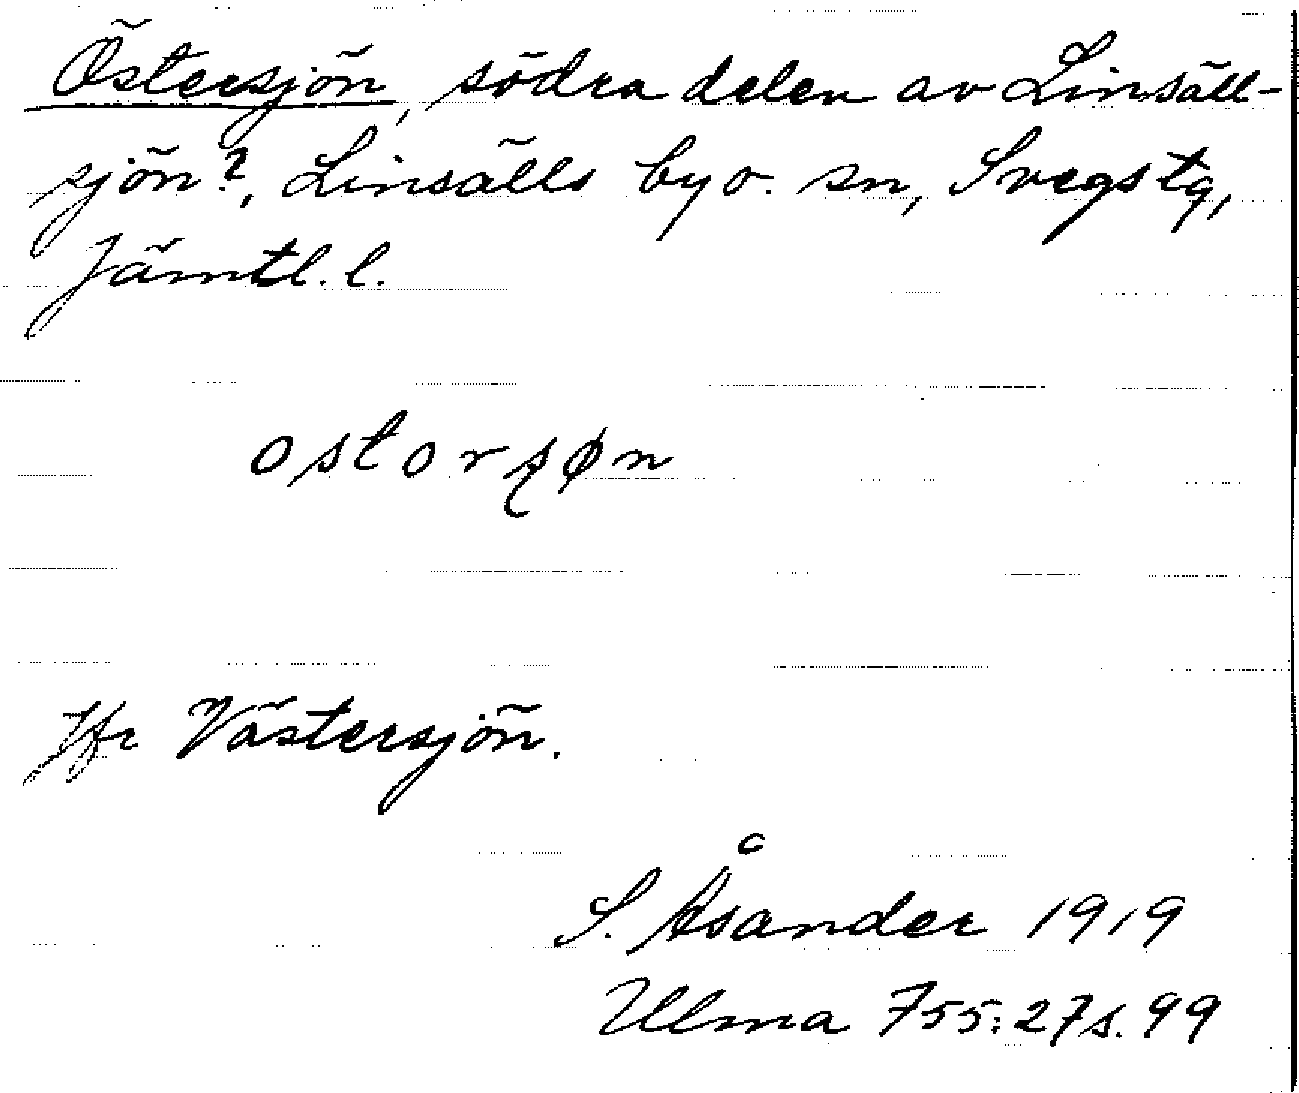 Östersjön, södra delen av Linsäll-
sjön?, Linsälls by o. sn, Svegs tg,
Jämtl. l.
ostorʂøn
Jfr Västersjön.
S. Åsander 1919
Ulma 755:27 s. 99